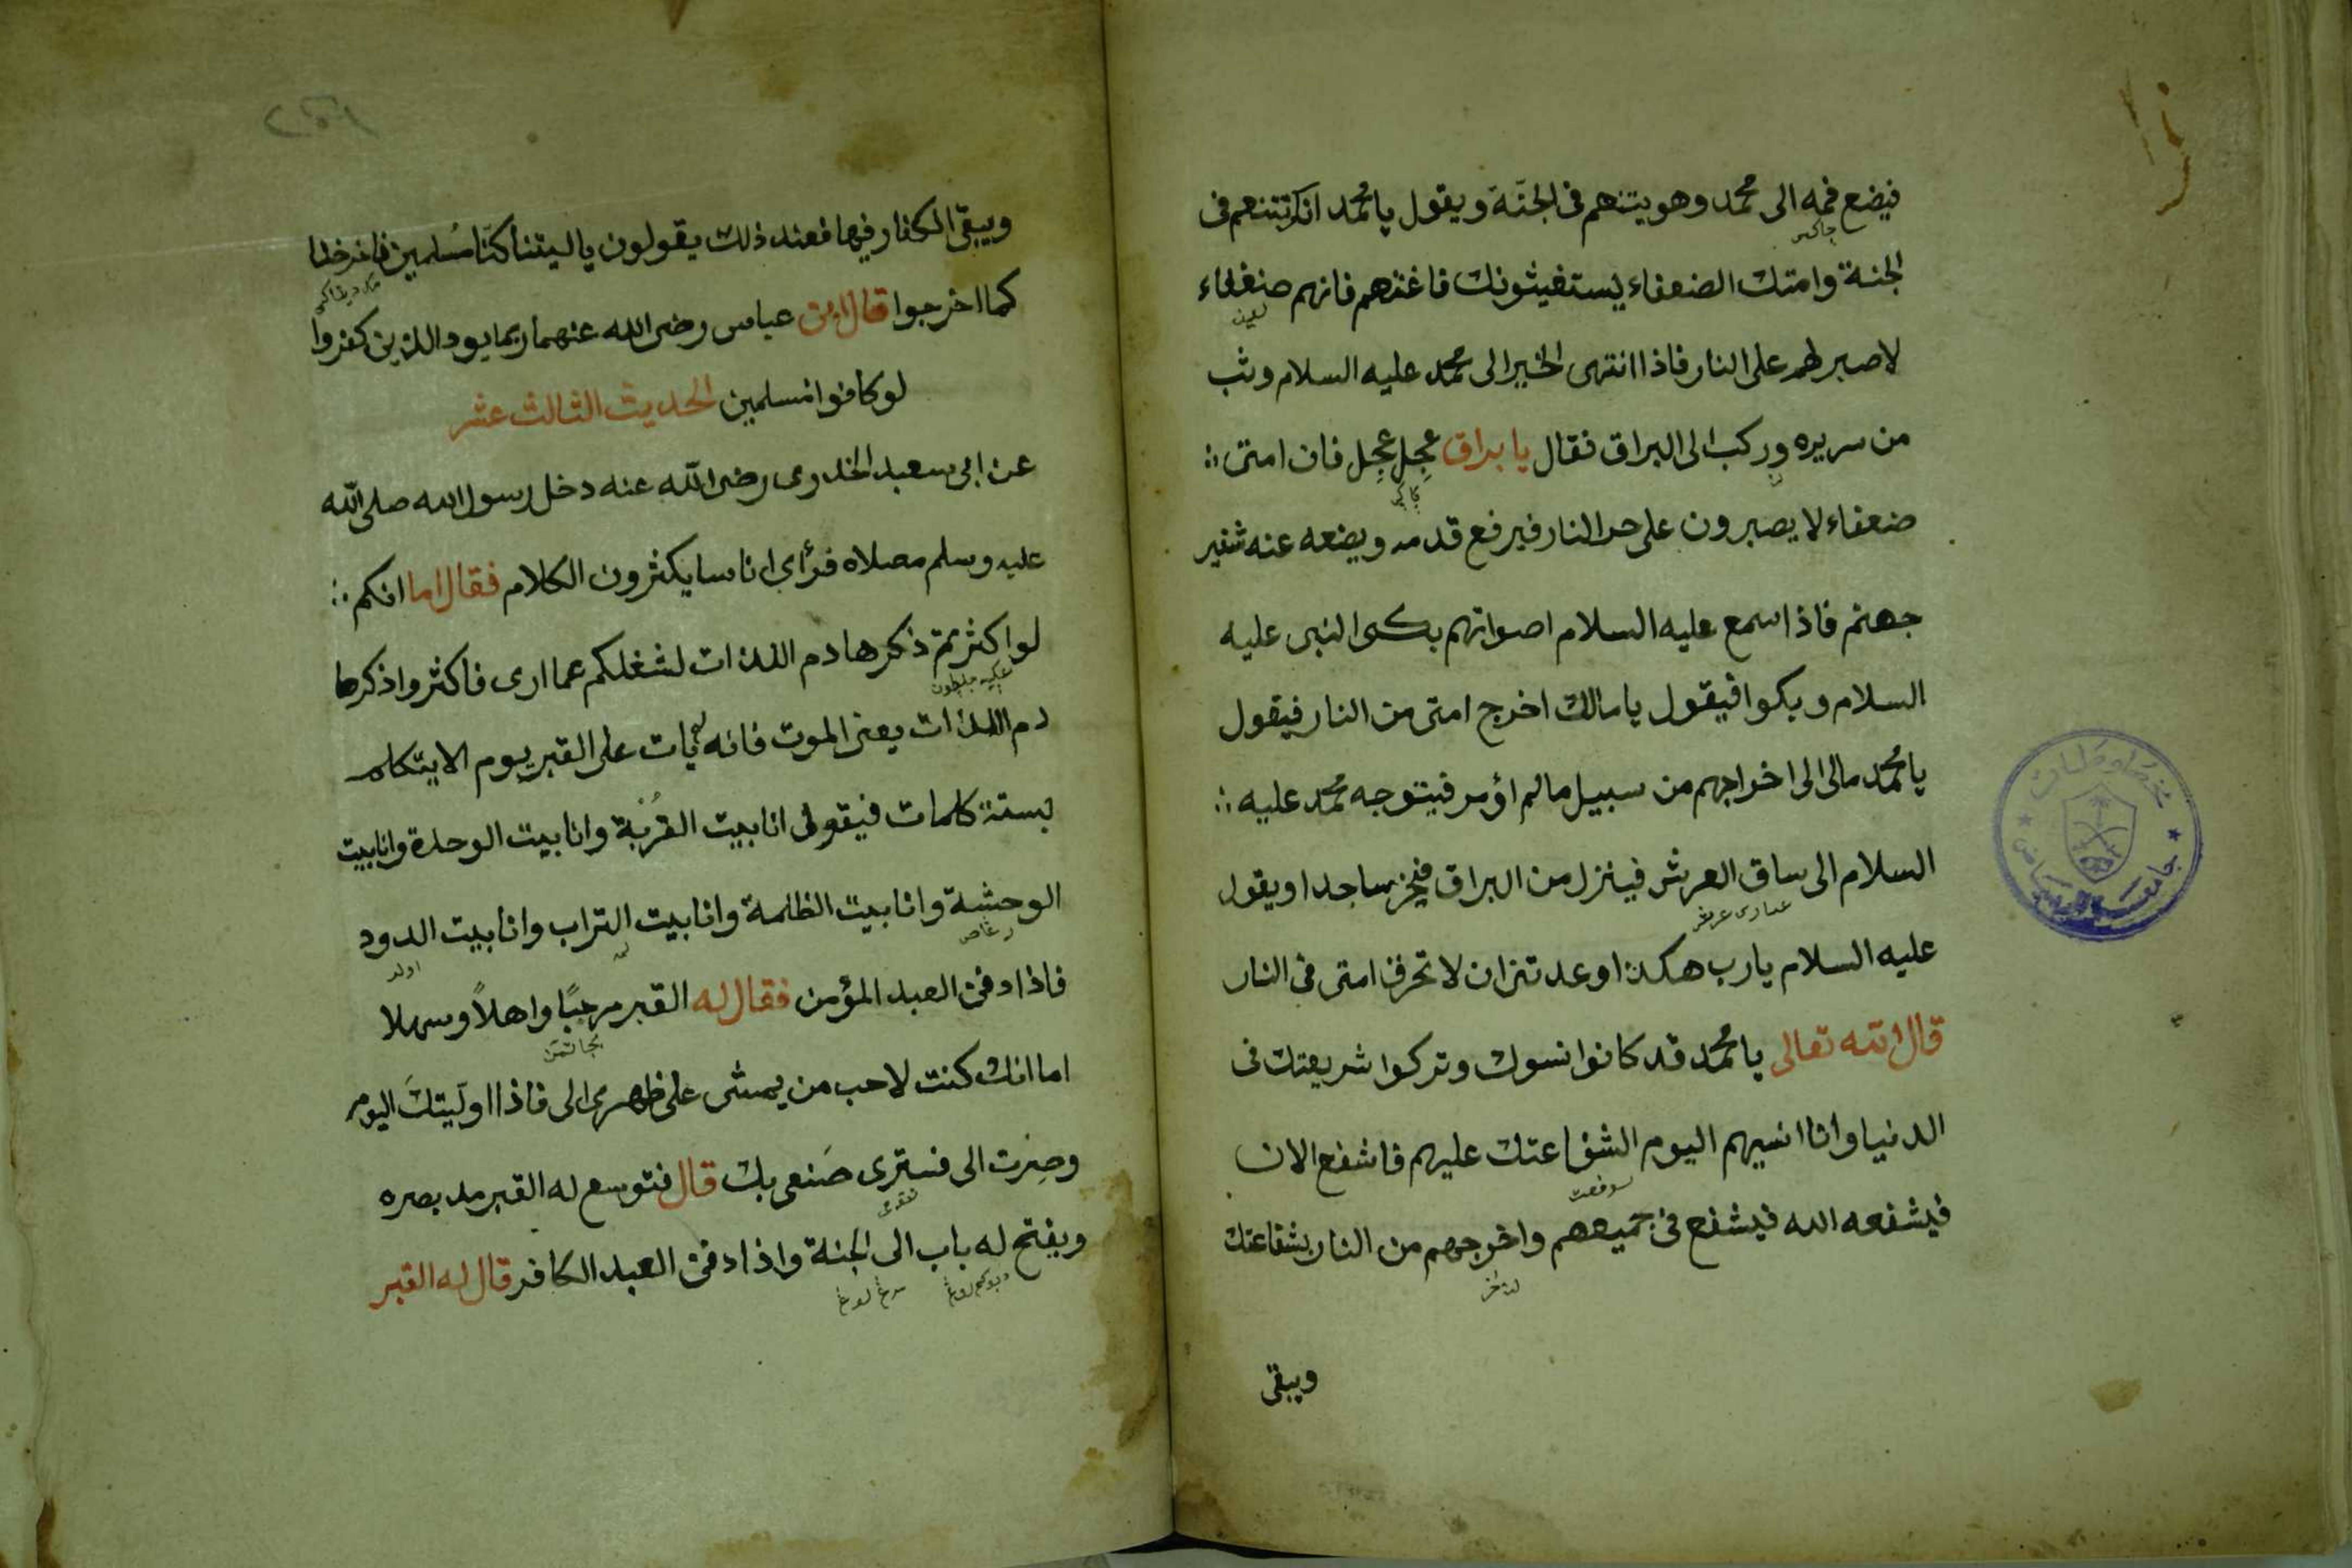 فيضع فمه الى محمد وهو يتنهم فى الجنّة ويقول يا محمد انك تتنعم فى
الجنة وامتك الضعفاء يستغيثونك فاغثهم فانهم ضعفاء
لا صبر لهم على النار فاذا انتهى الخبر الى محمد عليه السلام وثب
من سريره وركب الى البراق فقال يا براق عجِل عجِل فان امتى
ضعفاء لا يصبرون على حر النار فيرفع قدمه ويضعه عنه شفير
جهنم فاذا سمع عليه السلام اصواتهم بكى النبى عليه
السلام وبكوا فيقول يا مالك اخرج امتى من النار فيقول
يا محمد مالى الى اخراجهم من سبيل مالم اؤمر فيتوجه محمد عليه
السلام الى ساق العرش فينزل من البراق فيخر ساجدا ويقول
عليه السلام يا رب هكذا وعدتنى ان لا تحرق امتى فى النار
قال الله تعالى يا محمد قد كانوا نسوك وتركوا شريعتك فى
الدنيا وانا انسيهم اليوم الشفاعتك عليهم فاشفع الان
فيشفعه الله فيشفع فى جميعهم واخرجهم من النار بشفاعتك
ويبقى
ويبقى الكفار فيها فعند ذلك يقولون يا ليتنا كنّا مُسلمين فاخرخنا
كما اخرجوا قال ابن عباس رضى الله عنهما ربما يود الذين كفروا
لو كانوا مسلمين الحديث الثالث عشر
عن ابى سعيد الخدرى رضى الله عنه دخل رسول الله صلى الله
عليه وسلم مصلاه فرأى اناسا يكثرون الكلام فقال اما انكم
لو اكثرتم ذكر هادم اللذات لشغلكم عما ارى فاكثروا ذكر ها
دم اللذات يعنى الموت فانه لم يأت على القبر يوم الا يتكلم
بستة كلمات فيقول انا بيت الغُربة وانا بيت الوحدة وانا بيت
الوحشة وانا بيت الظلمة وانا بيت التراب وانا بيت الدود
فاذا دفن العبد المؤمن فقال له القبر مرحبًا واهلاً وسهلا
اما انك كنت لاحب من يمشى على ظهرى الى فاذا اوليتكَ اليوم
وصِرت الى فسترى صَنعى بك قال فتوسع له القبر مد بصره
ويفتح له باب الى الجنة واذا دفن العبد الكافر قال له القبر